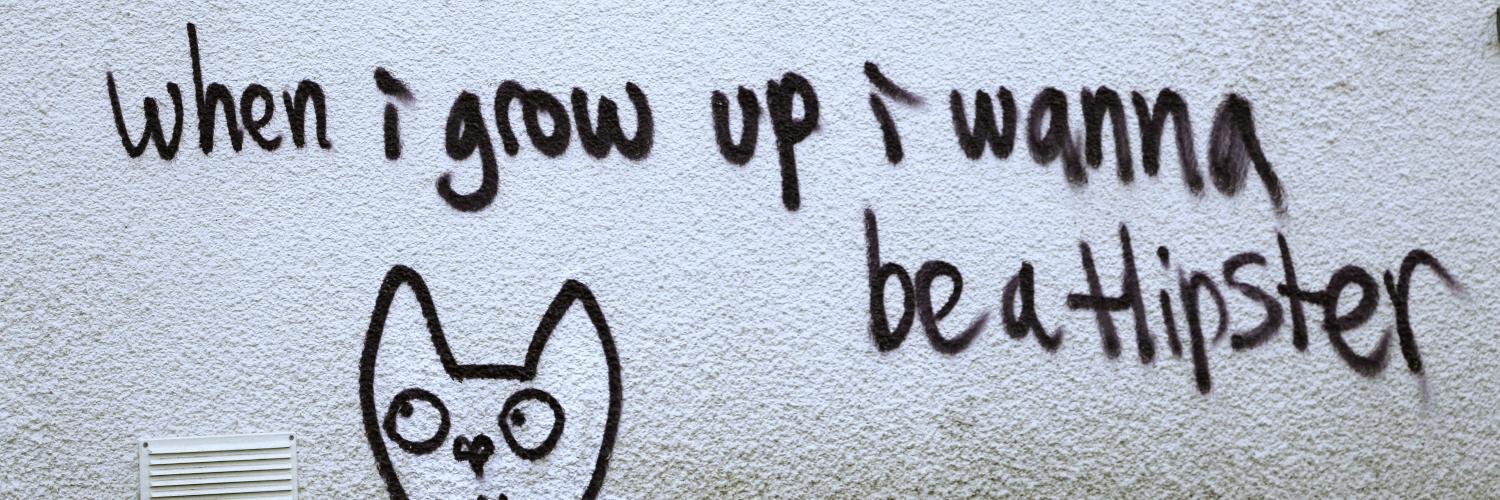 when i grow up i wanna
be a Hipster